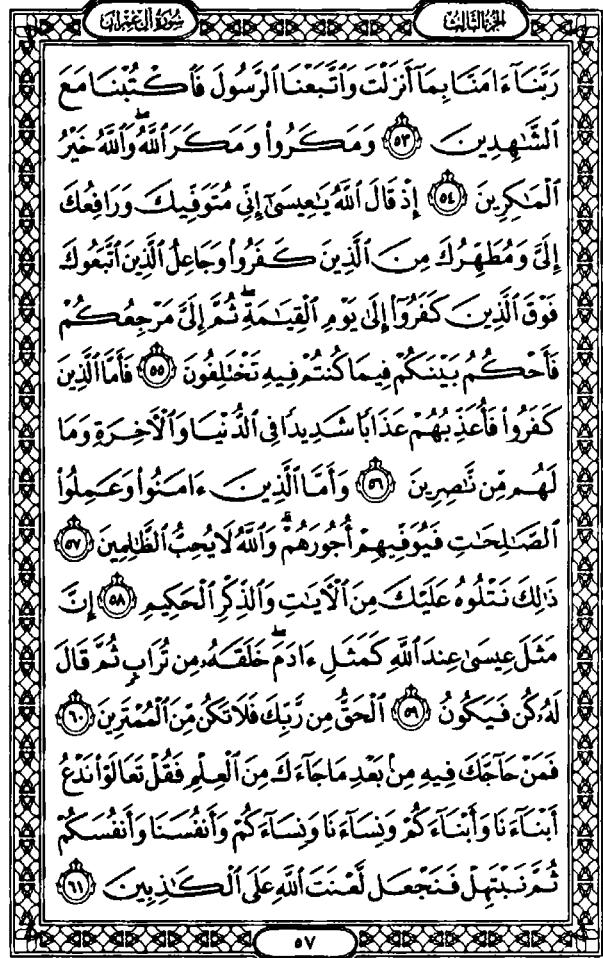 سُورَةُ آلِ عِمْرَانَ الجُزْءُ الثَّالِثُ
رَبَّنَآ ءَامَنَّا بِمَآ أَنزَلْتَ وَٱتَّبَعْنَا ٱلرَّسُولَ فَٱكْتُبْنَا مَعَ
ٱلشَّٰهِدِينَ ٥٣ وَمَكَرُوا۟ وَمَكَرَ ٱللَّهُ ۖ وَٱللَّهُ خَيْرُ
ٱلْمَٰكِرِينَ ٥٤ إِذْ قَالَ ٱللَّهُ يَٰعِيسَىٰٓ إِنِّى مُتَوَفِّيكَ وَرَافِعُكَ
إِلَىَّ وَمُطَهِّرُكَ مِنَ ٱلَّذِينَ كَفَرُوا۟ وَجَاعِلُ ٱلَّذِينَ ٱتَّبَعُوكَ
فَوْقَ ٱلَّذِينَ كَفَرُوٓا۟ إِلَىٰ يَوْمِ ٱلْقِيَٰمَةِ ۖ ثُمَّ إِلَىَّ مَرْجِعُكُمْ
فَأَحْكُمُ بَيْنَكُمْ فِيمَا كُنتُمْ فِيهِ تَخْتَلِفُونَ ٥٥ فَأَمَّا ٱلَّذِينَ
كَفَرُوا۟ فَأُعَذِّبُهُمْ عَذَابًا شَدِيدًا فِى ٱلدُّنْيَا وَٱلْءَاخِرَةِ وَمَا
لَهُم مِّن نَّٰصِرِينَ ٥٦ وَأَمَّا ٱلَّذِينَ ءَامَنُوا۟ وَعَمِلُوا۟
ٱلصَّٰلِحَٰتِ فَيُوَفِّيهِمْ أُجُورَهُمْ ۗ وَٱللَّهُ لَا يُحِبُّ ٱلظَّٰلِمِينَ ٥٧
ذَٰلِكَ نَتْلُوهُ عَلَيْكَ مِنَ ٱلْءَايَٰتِ وَٱلذِّكْرِ ٱلْحَكِيمِ ٥٨ إِنَّ
مَثَلَ عِيسَىٰ عِندَ ٱللَّهِ كَمَثَلِ ءَادَمَ ۖ خَلَقَهُۥ مِن تُرَابٍ ثُمَّ قَالَ
لَهُۥ كُن فَيَكُونُ ٥٩ ٱلْحَقُّ مِن رَّبِّكَ فَلَا تَكُن مِّنَ ٱلْمُمْتَرِينَ ٦٠
فَمَنْ حَآجَّكَ فِيهِ مِنۢ بَعْدِ مَا جَآءَكَ مِنَ ٱلْعِلْمِ فَقُلْ تَعَالَوْا۟ نَدْعُ
أَبْنَآءَنَا وَأَبْنَآءَكُمْ وَنِسَآءَنَا وَنِسَآءَكُمْ وَأَنفُسَنَا وَأَنفُسَكُمْ
ثُمَّ نَبْتَهِلْ فَنَجْعَل لَّعْنَتَ ٱللَّهِ عَلَى ٱلْكَٰذِبِينَ ٦١
٥٧